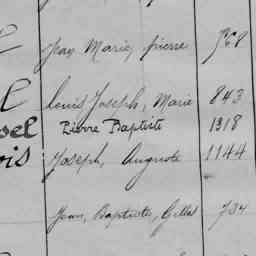 Jean Marie, pierre 768
Louis Joseph, Marie 843
Pierre Baptiste 1318
ois Joseph, Auguste 1144
Jean, Baptiste, Gilles 734